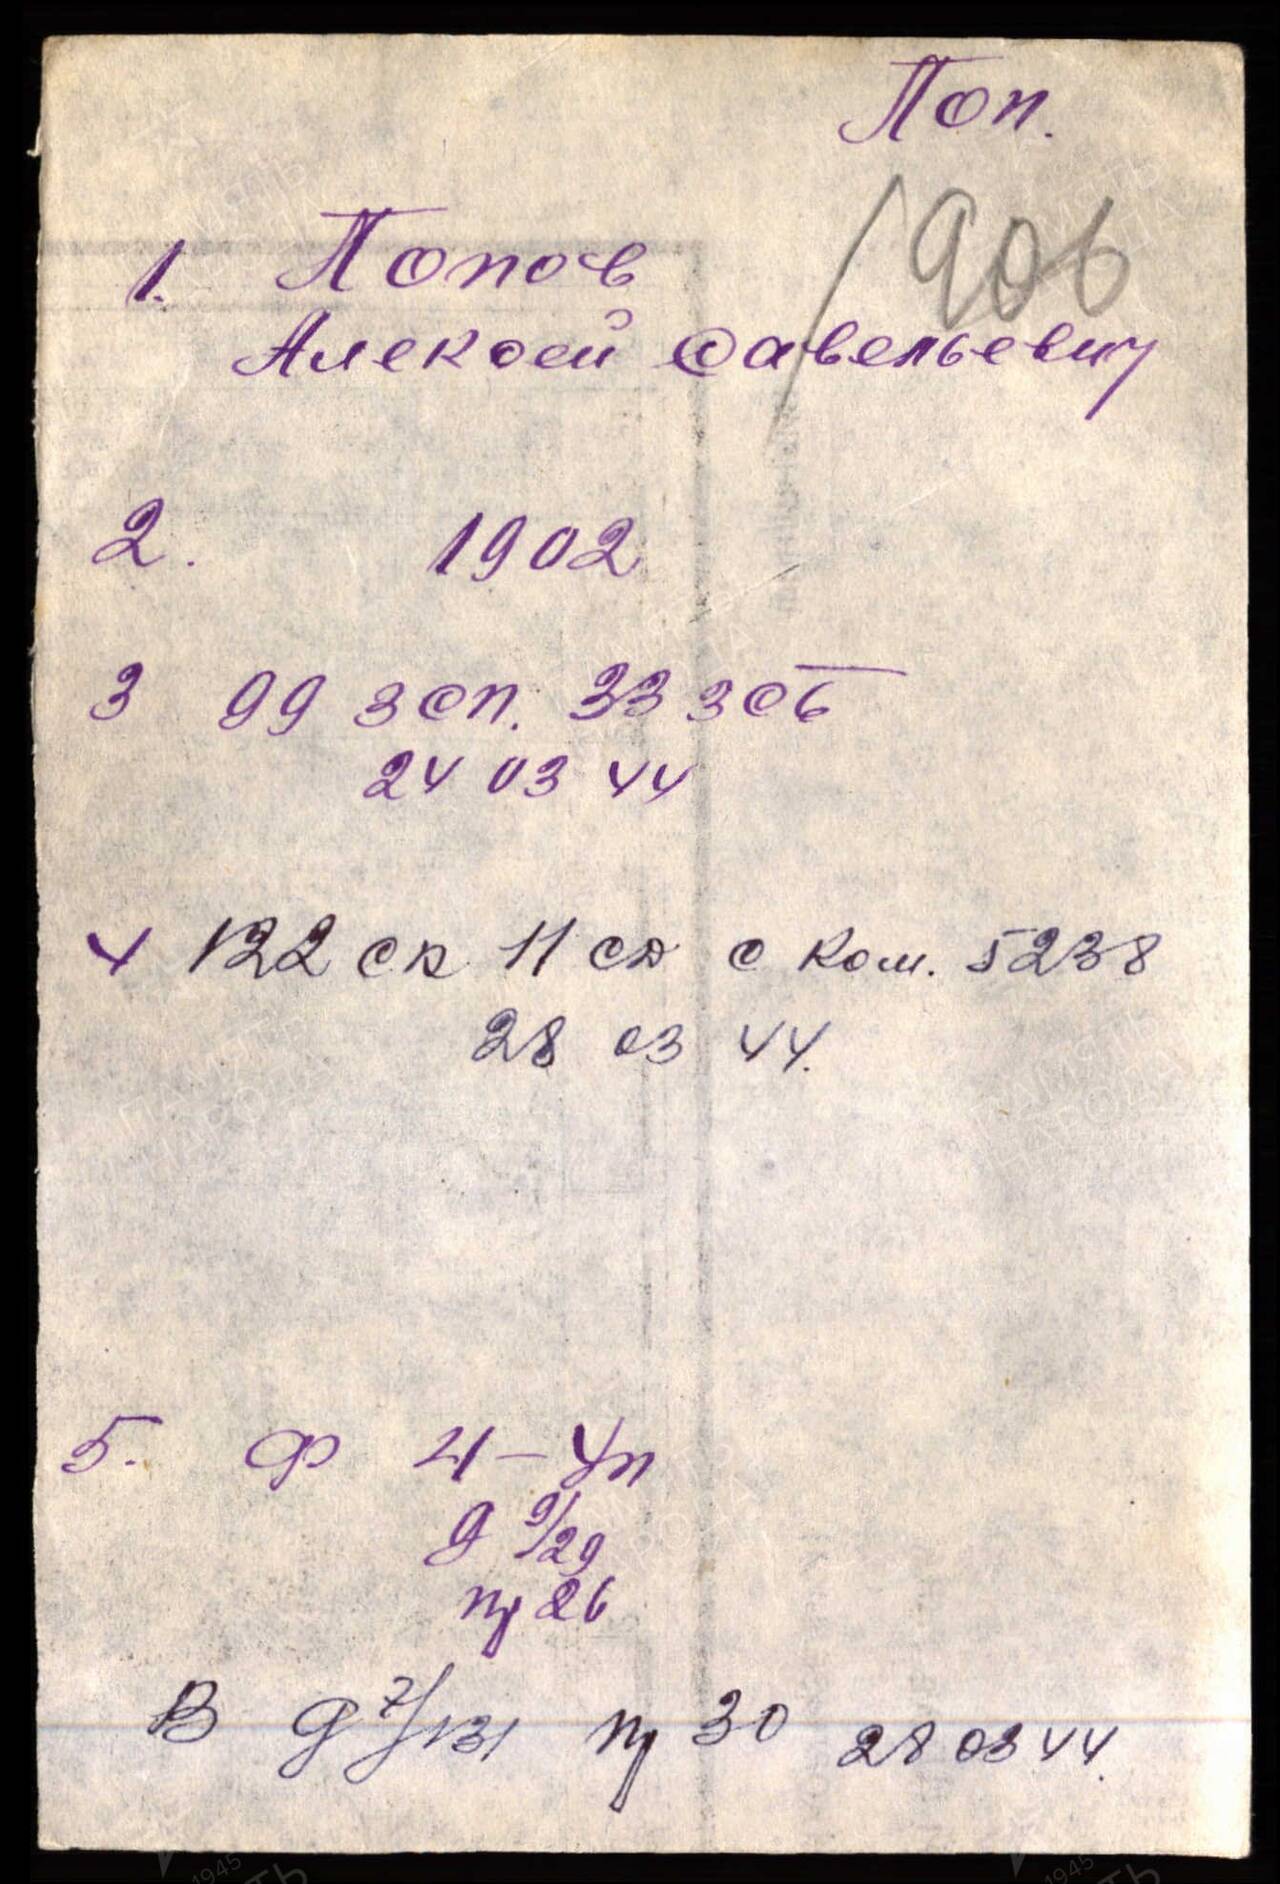 Поп.
1906
1. Попов
Алексей Савельевич
2. 1902
3 99 зсп. 33 зсб
24 03 44
4 122 сп 11 сд с ком. 5238
28 03 44.
5. Ф 41-Уп
д 9/29
пр 26
В д 7/131 пр 30 28 03 44.